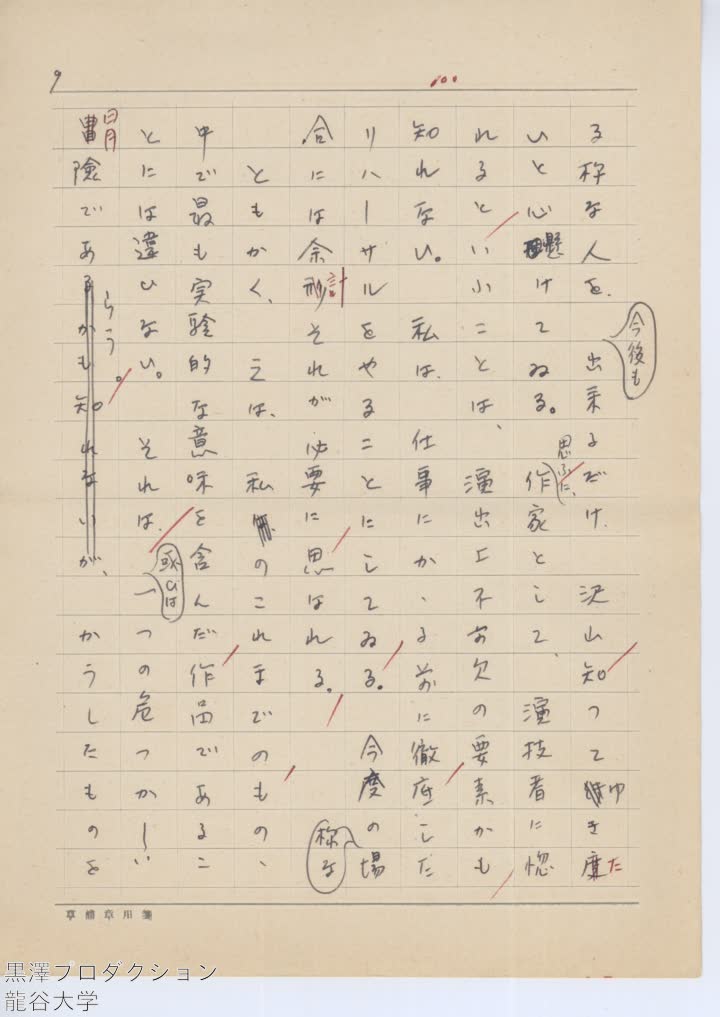 9
る様な人を、出来るだけ、沢山知つてゆき度た
今後も
いと心懸けてゐる。作家として、演技者に惚
思ふに、
れるといふことは、演出上不可欠の要素かも
知れない。私は、仕事にかゝる前に徹底した
リハーサルをやることにしてゐる。今度の場
合には余計それが必要に思はれる。
様な
ともかく、之は、私のこれまでのものゝ
中で最も実験的な意味を含んだ作品であるこ
とには違ひない。それは、一つの危つかしい
或ひは
冒険であるかも知れないが、かうしたものを
らう。
草稿用箋
黒澤プロダクション
龍谷大学